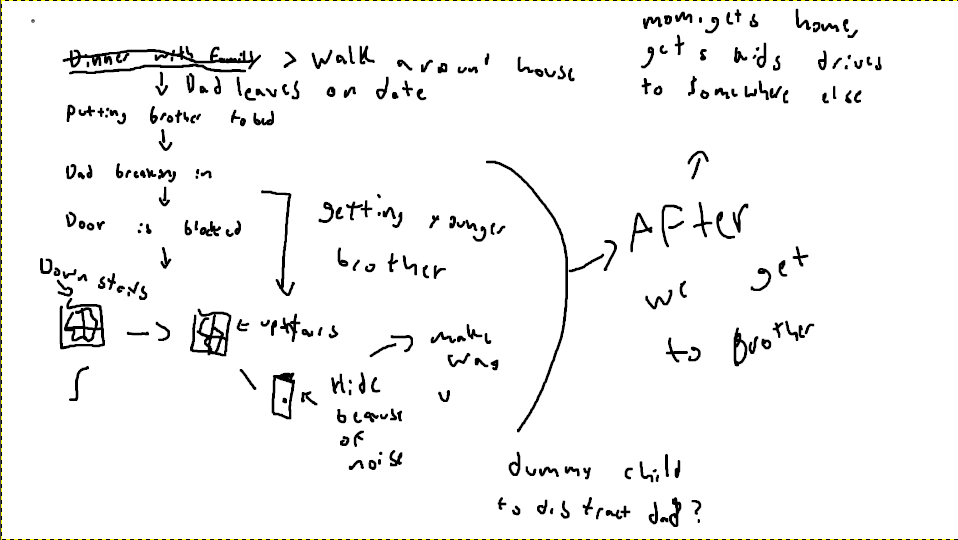 Dinner with Family > walk aroun' house
Dad leaves on date
putting brother to bed
Dad breaking in
Door is blocked
Down stairs
getting younger
brother
upstairs
Hide
because
of
noise
make
way
dummy child
to distract dad?
AFter
we get
to Brother
mom gets home,
gets kids drives
to somewhere else